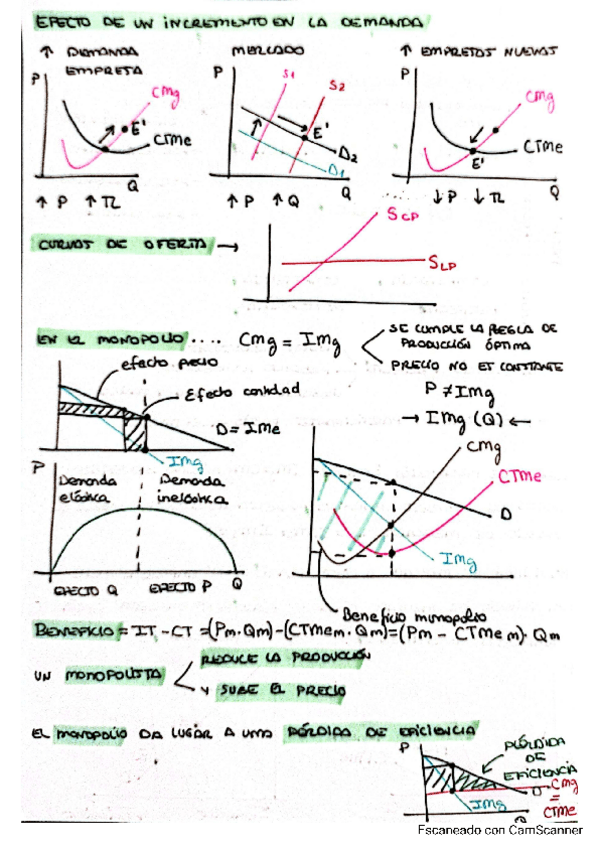 EFECTO DE UN INCREMENTO EN LA DEMANDA
↑ DEMANDA
EMPRESA
P
Cmg
E'
CTMe
Q
↑ P ↑ TL
MERCADO
P
S1
S2
E'
D2
D1
Q
↑ P ↑ Q
↑ EMPRESAS NUEVAS
P
Cmg
CTMe
E'
Q
↓ P ↓ TL
CURVAS DE OFERTA →
SCP
SLP
EN EL MONOPOLIO .... Cmg = IMg
SE CUMPLE LA REGLA DE
PRODUCCIÓN ÓPTIMA
PRECIO NO ES CONSTANTE
P ≠ IMg
→ IMg (Q) ←
efecto precio
Efecto cantidad
D = IMe
IMg
P
Demanda
elástica
Demanda
inelástica
EFECTO Q
EFECTO P
Q
CMg
CTMe
D
IMg
Beneficio monopolio
BENEFICIO = IT - CT = (Pm · Qm) - (CTMem · Qm) = (Pm - CTMe m) · Qm
UN MONOPOLISTA
REDUCE LA PRODUCCIÓN
Y SUBE EL PRECIO
EL MONOPOLIO DA LUGAR A UNA PÉRDIDA DE EFICIENCIA
P
PÉRDIDA
DE
EFICIENCIA
D
CMg
=
CTMe
IMg
Q
Escaneado con CamScanner